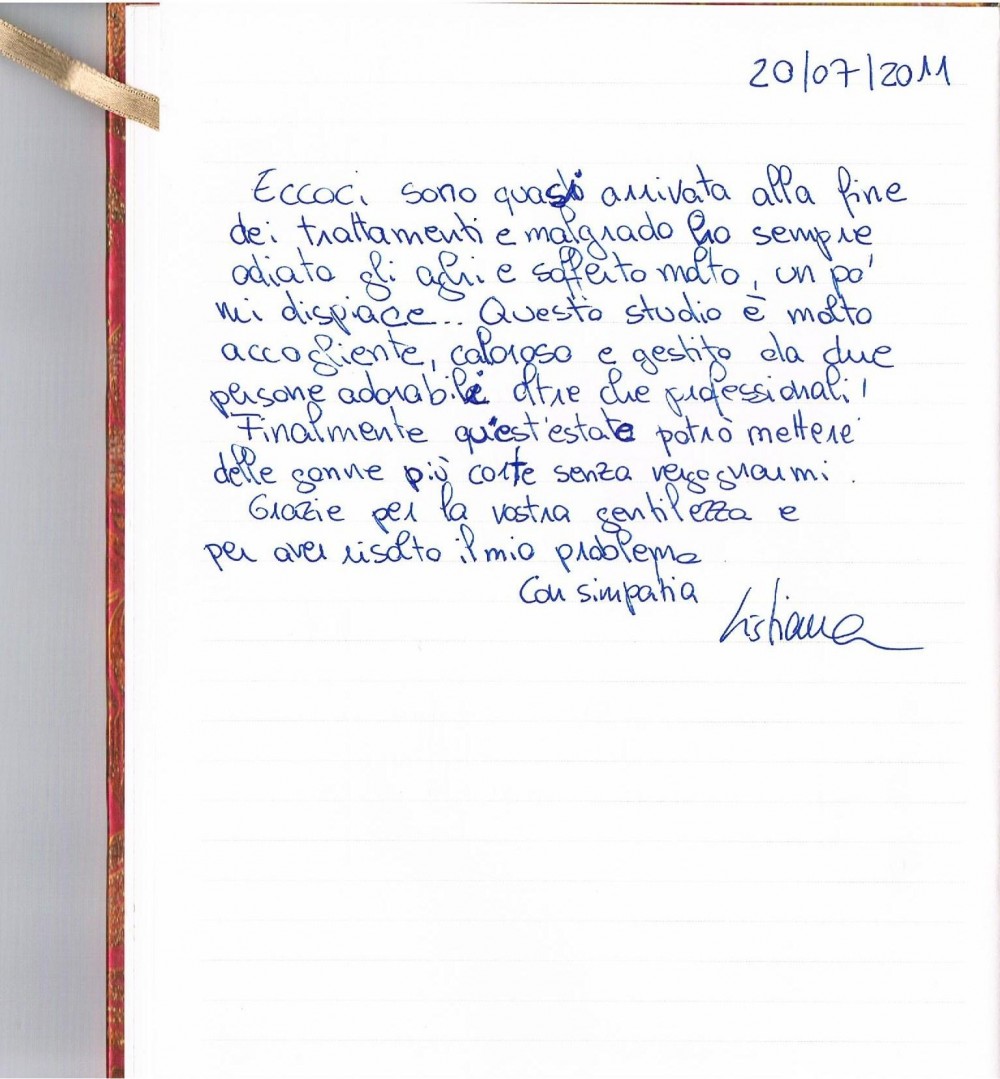 20/07/2011
Eccoci sono quasi arrivata alla fine
dei trattamenti e malgrado ho sempre
odiato gli aghi e sofferto molto, un po'
mi dispiace... Questo studio è molto
accogliente, caloroso e gestito da due
persone adorabili oltre che professionali!
Finalmente quest'estate potrò mettere
delle gonne più corte senza vergognarmi.
Grazie per la vostra gentilezza e
per aver risolto il mio problema
Con simpatia